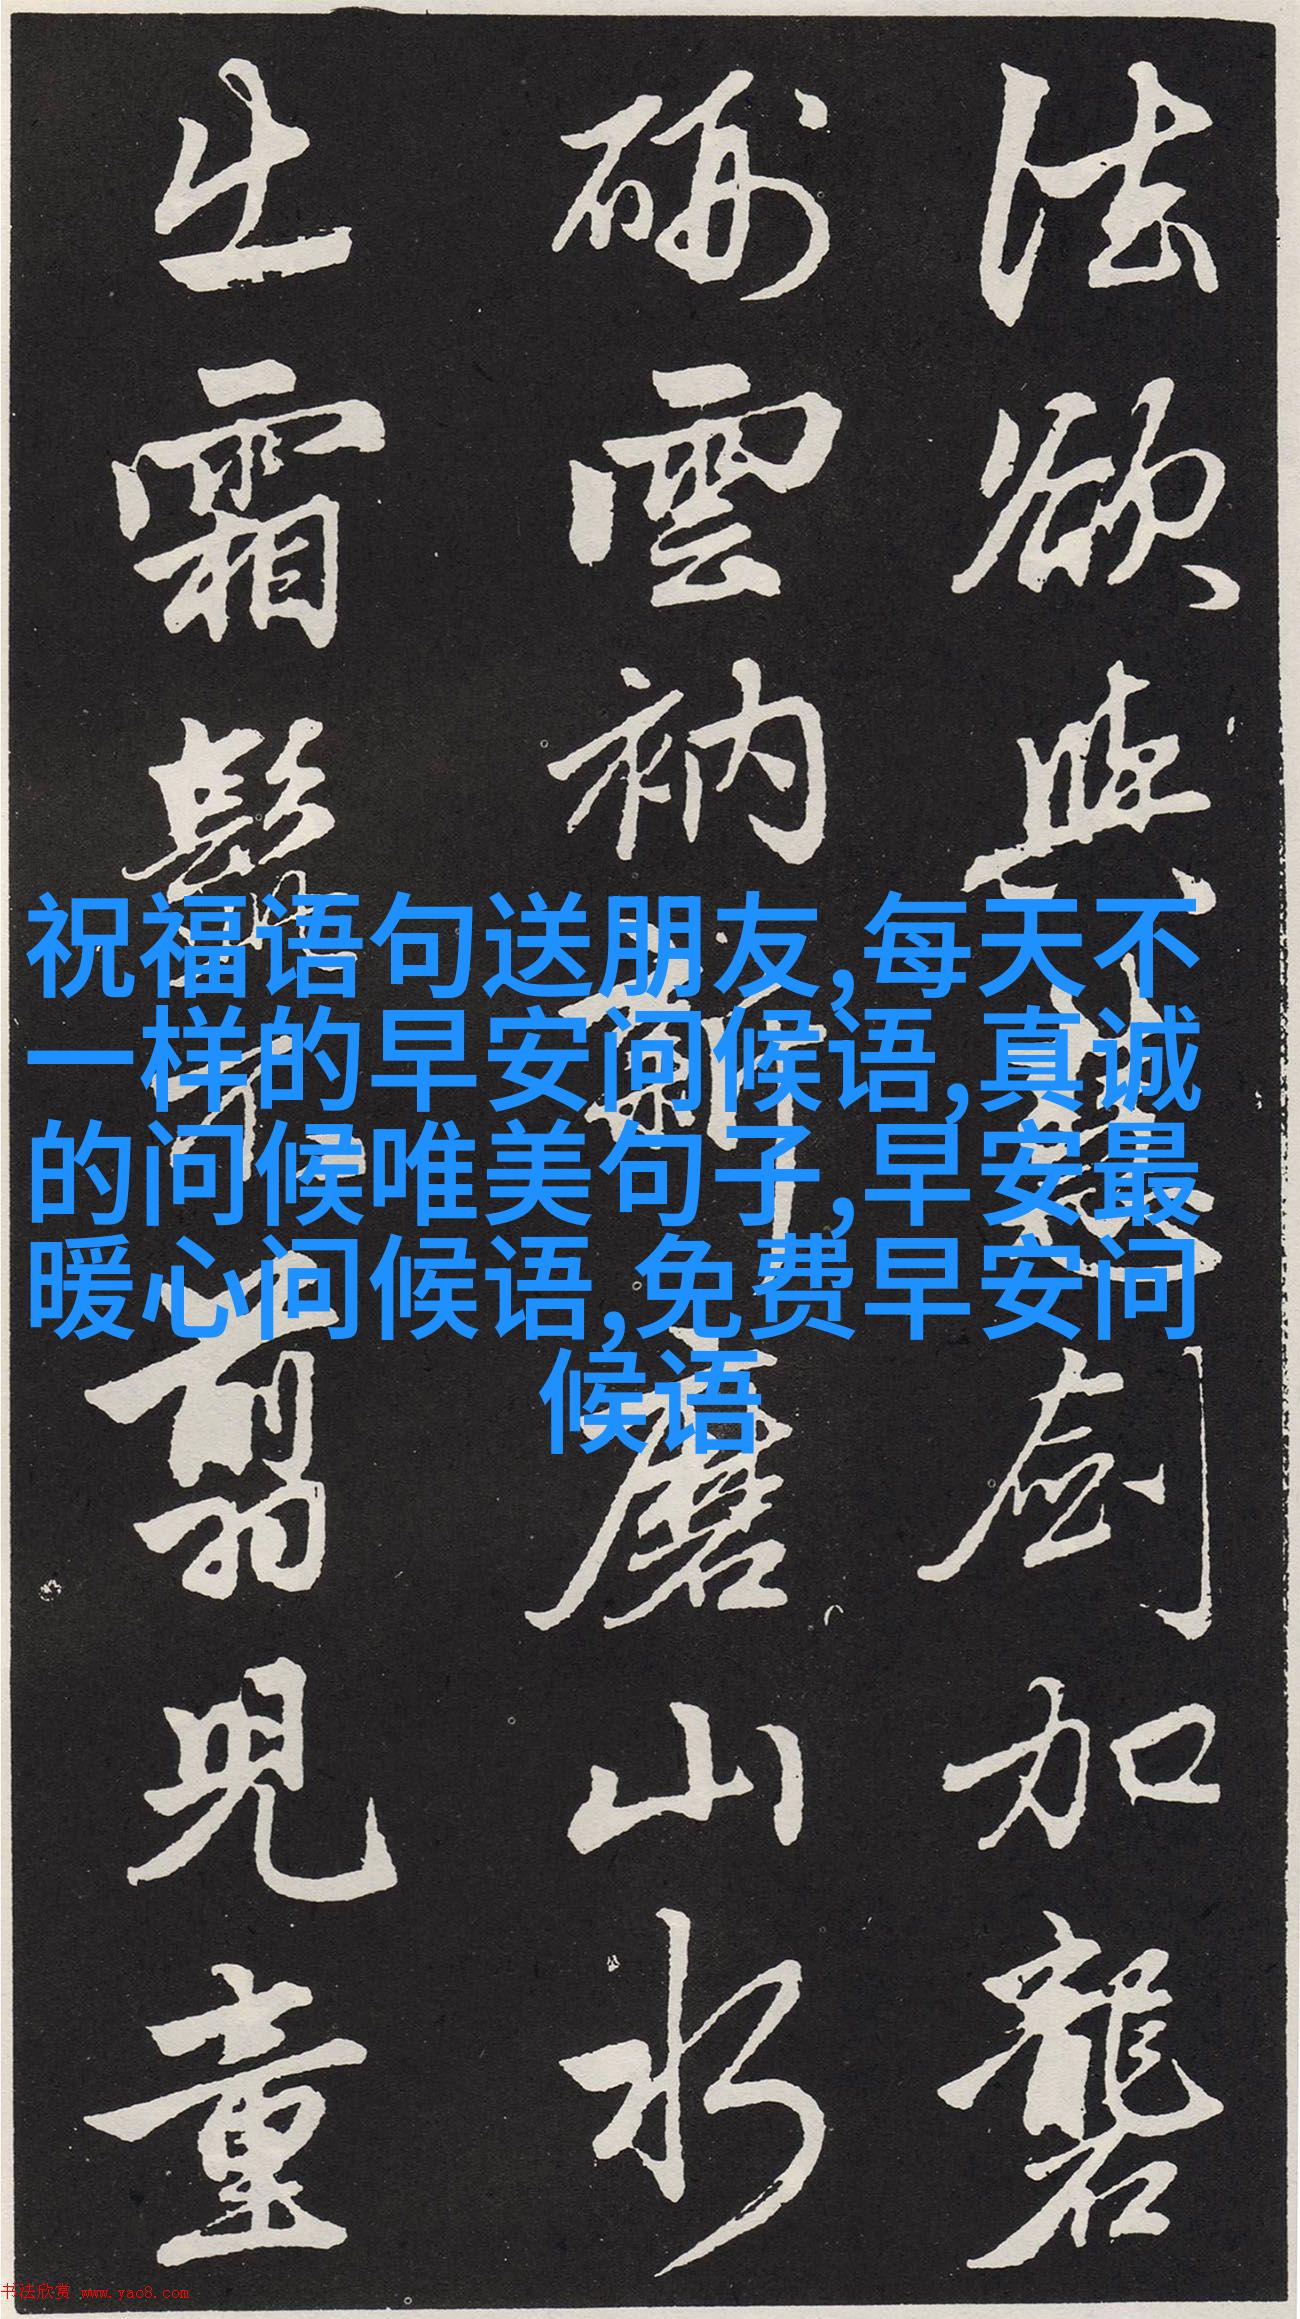 法欲與慧劍加礱
硎雲衲新磨山水
出霜髭霜剪兒童
祝福语句送朋友,每天不
一样的早安问候语,真诚
的问候唯美句子,早安最
暖心问候语,免费早安问
候语
书法欣赏 www.yac8.com